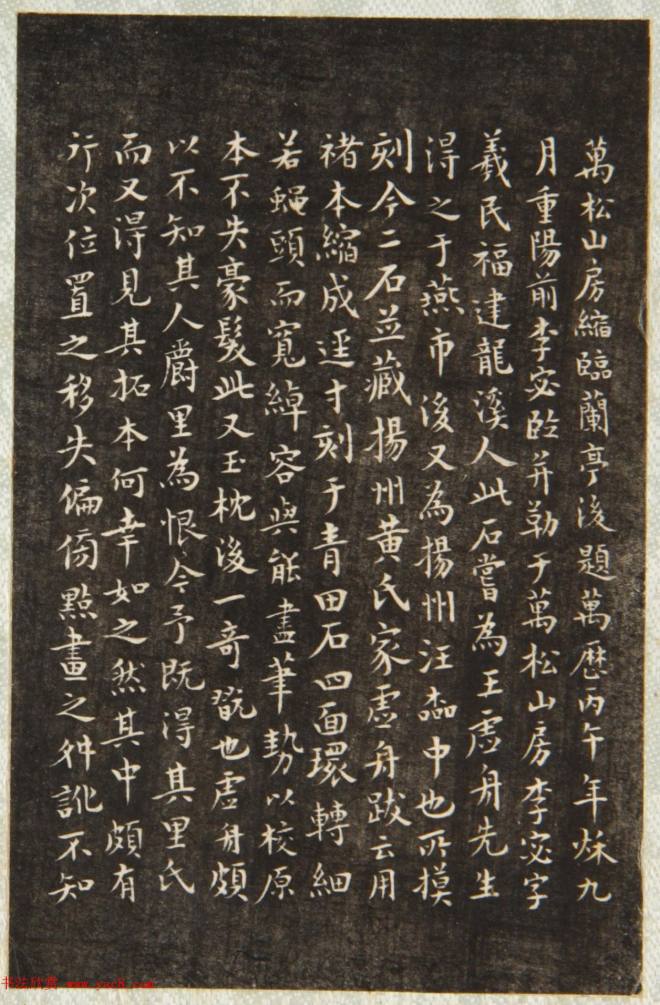 萬松山房縮臨蘭亭後題萬歷丙午年烁九
月重陽前李宓臨并勒于萬松山房李宓字
羲民福建龍溪人此石嘗為王虛舟先生
得之于燕市後又為揚州汪中也所摸
刻今二石並藏揚州黄氏家虛舟跋云用
褚本縮成逕寸刻于青田石四面環轉細
若蠅頭而寬綽容與能盡筆勢以校原
本不失豪髮此又玉枕後一奇翫也虛舟頗
以不知其人爵里為恨今予既得其里氏
而又得見其拓本何幸如之然其中頗有
行次位置之移失偏傍點畫之舛訛不知
书法欣赏